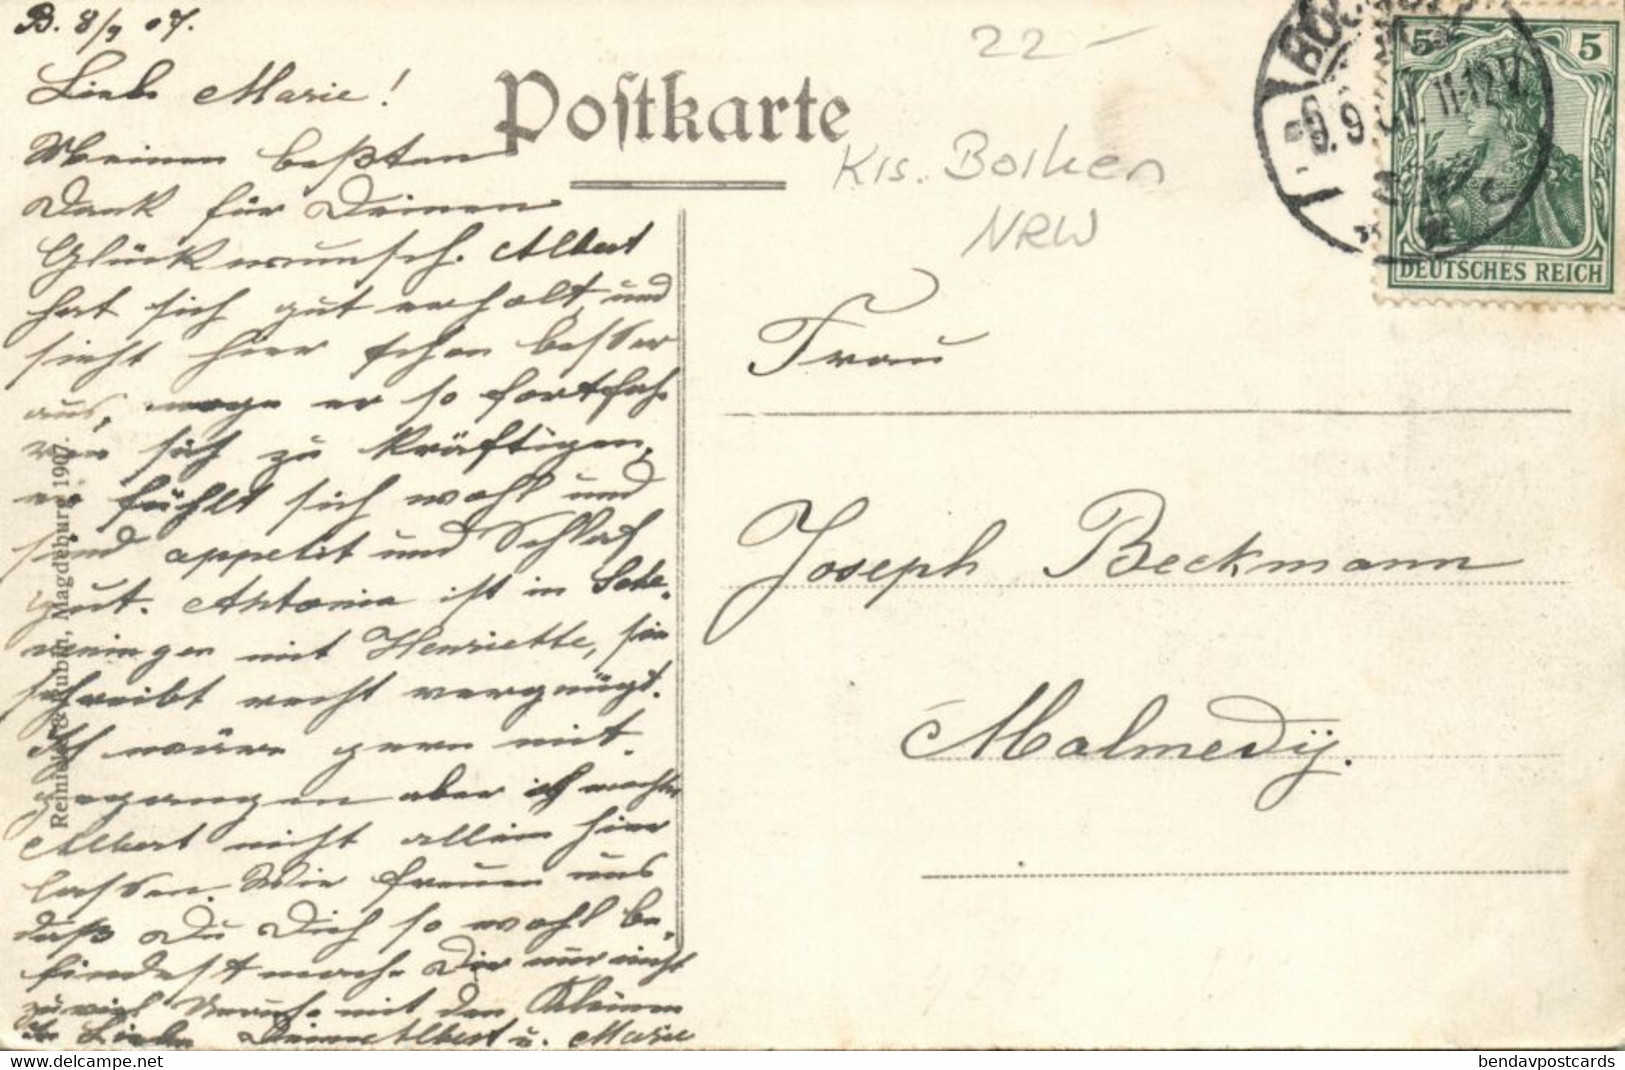 B. 8/9 07.
Liebe Marie!
Meinen besten
Dank für Deinen
Glückwunsch. Albert
hat sich gut erholt, und
sieht hier schon besser
aus, möge er so fortfah-
ren sich zu kräftigen,
er fühlt sich wohl und
sind appetit und Schlaf
gut. Antonia ist in Sche-
veningen mit Henriette, sie
schreibt recht vergnügt.
Ich wäre gern mit-
gegangen aber ich mochte
Albert nicht allein hier
lassen. Wir freuen uns
daß Du Dich so wohl be-
findest mach Dir nur nicht
zu viel Unruhe mit den Kleinen
In Liebe Deine Albert u. Marie
Reinicke & Rubin, Magdeburg 1907.
Postkarte
22-
Krs. Borken
NRW
BOCHOLT
8.9.07. 11-12 V.
5 5
DEUTSCHES REICH
Frau
Joseph Beckmann
Malmedy.
bendavpostcards